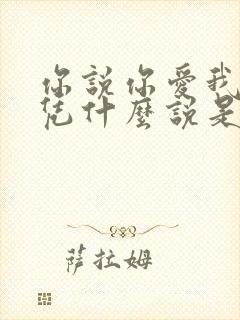 你說你愛我
凭什麼說是
萨拉姆